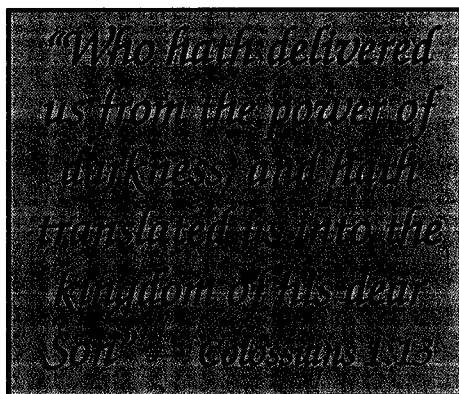 “Who hath delivered
us from the power of
darkness, and hath
translated us into the
kingdom of His dear
Son” — Colossians 1:13